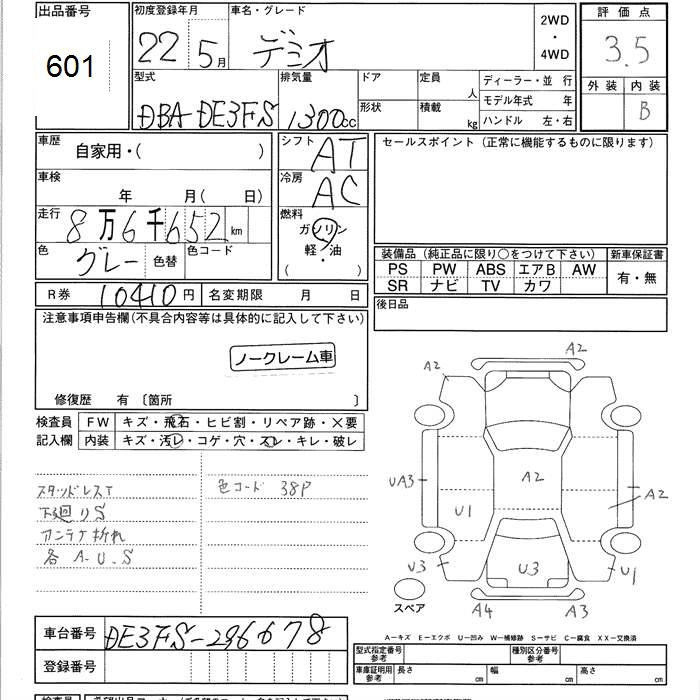 出品番号
601
初度登録年月
22 5月
車名・グレード
デミオ
2WD
・
4WD
評価点
3.5
外装 内装
B
型式
DBA-DE3FS
排気量
1300cc
ドア
形状
定員
人
積載
kg
ディーラー・並 行
モデル年式 年
ハンドル 左・右
車歴
自家用・( )
シフト
AT
セールスポイント (正常に機能するものに限ります)
車検
年 月( 日)
冷房
AC
走行
8万6千652km
燃料
ガソリン
軽・油
( ・ )
色
グレー
色替
色コード
装備品 (純正品に限り〇をつけて下さい)
新車保証書
PS PW ABS エアB AW
SR ナビ TV カワ
有・無
R券
10410円
名変期限 月 日
後日品
注意事項申告欄(不具合内容等は具体的に記入して下さい)
ノークレーム車
修復歴 有 〔箇所 〕
検査員
記入欄
FW キズ・飛石・ヒビ割・リペア跡・X要
内装 キズ・汚レ・コゲ・穴・スレ・キレ・破レ
スタッドレスT
下廻りS
アンテナ折れ
各 A.U.S
色コード 38P
A2
A2
UA3
U1
A2
A2
U3
U3
U1
A4
A3
スペア
A-キズ E-エクボ U-凹み W-補修跡 S-サビ C-腐食 XX-交換済
車台番号
DE3FS-296678
登録番号
型式指定番号
参考
種別区分番号
参考
車庫証明用
参考
長さ cm
幅 cm
高さ cm